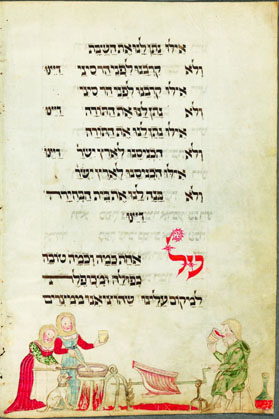 אילו נתן לנו את השבת
ולא קרבנו לפני הר סיני דיינו
אילו קרבנו לפני הר סיני
ולא נתן לנו את התורה דיינו
אילו נתן לנו את התורה
ולא הכניסנו לארץ ישר׳ דיינו
אילו הכניסנו לארץ ישר׳
ולא בנה לנו את בית הבחירה
דיינו
על אחת כמה וכמה טובה
כפולה ומכופלת
למקום עלינו שהוציאנו ממצרים